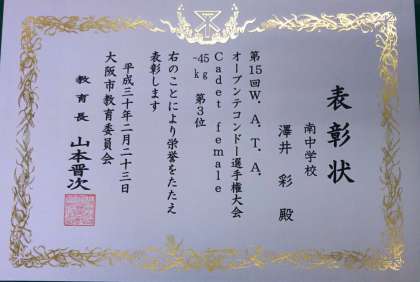 表彰状
南中学校
澤井 彩 殿
第15回W.A.T.A.
オープンテコンドー選手権大会
Cadet female
-45kg 第3位
右のことにより栄誉をたたえ
表彰します
平成三十年二月二十三日
大阪市教育委員会
教育長 山本晋次